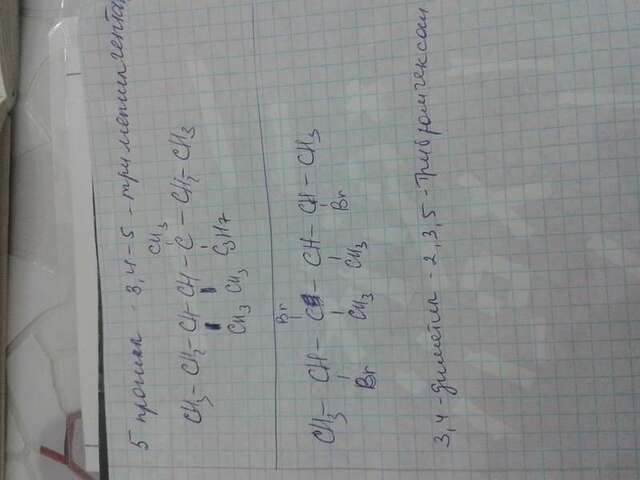 5 пропил - 3,4-5 - триметилгептан
CH3
CH3 – CH2 – CH – CH – C – CH2 – CH3
CH3 CH3 C3H7
Br
CH3 – CH – C – CH – CH – CH3
Br CH3 CH3 Br
3,4-диметил - 2,3,5 - Трибромгексан